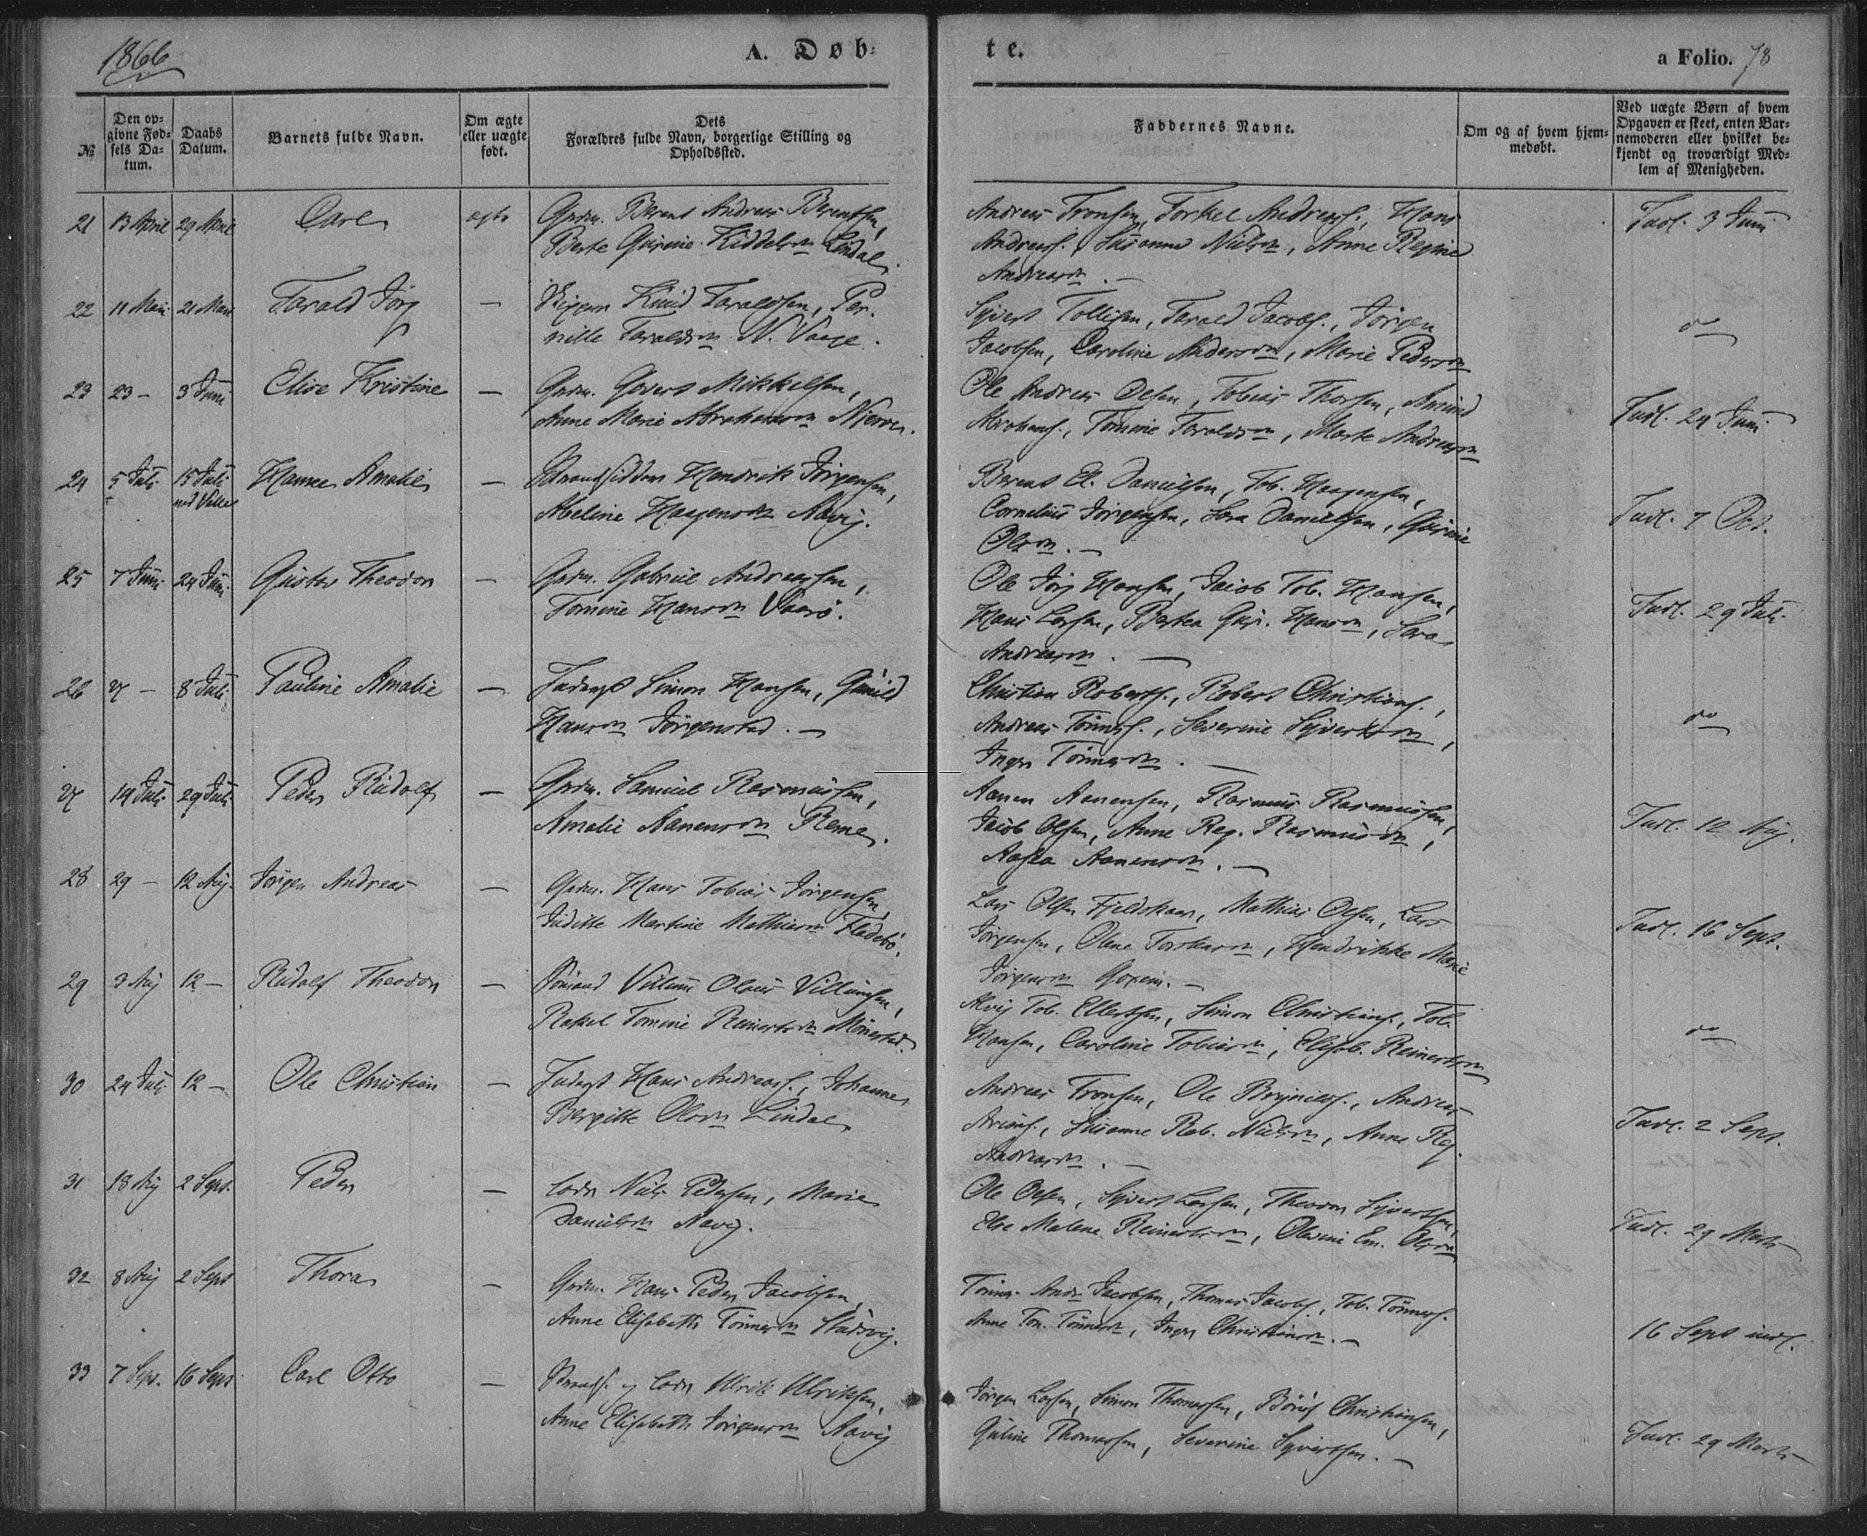 1866
A. Døb-
te.
a Folio. 78
№
Den op-
givne Fød-
sels Da-
tum.
Daabs
Datum.
Barnets fulde Navn.
Om ægte
eller uægte
født.
Dets
Forældres fulde Navn, borgerlige Stilling og
Opholdssted.
Faddernes Navne.
Om og af hvem hjem-
medøbt.
Ved uægte Børn af hvem
Opgaven er skeet, enten Bar-
nemoderen eller hvilket be-
kjendt og troværdigt Med-
lem af Menigheden.
21 13 April 29 April Carl ægte Grdm. Berent Andreas Berentsen,
Berte Gurine Lindal.
Andreas Tronsen, Torkel Andreass., Hans
Andreass., Susanne Nielsdn, Anne Regine
Andreasdn. —
Indl. 3 Juni
22 11 Mai 21 Mai Tarald Jørg — Knud Taraldsen, Per-
nille Taraldsdn N. Vaage.
Syvert Tollisen, Tarald Jacobs., Jørgen
Jacobsen, Caroline Andersdn, Marie Pedersdn
do
23 23 — 3 Juni Elise Kristine — Grdm. Govert Mikkelsen,
Anne Marie Abrahamsdn
Ole Andreas Olsen, Tobias Thorsen,
Abrahams., Tomine Taraldsdn, Marte Andreasdn
Indl. 24 Juni
24 5 Juli 15 Juli Hanne Amalie — Strandsidder Hendrik Jørgensen,
Abeline Haagensdn Aavig.
Berent El. Danielsen, Tob. Haagensen,
Cornelius Jørgensen, Sara Danielsen, Gurine
Olsdn. —
Indl. 7 Oct.
25 7 Juni 24 Juni Gustav Theodor — Grdm. Gabriel Andreassen,
Tomine Hansdn
Ole Jørg Hansen, Jacob Tob. Hansen,
Hans Larsen, Hansdn, Sara
Andreasdn. —
Indl. 29 Juli
26 27 — 8 Juli Pauline Amalie — Inderst Simon Hansen, Gunild
Hansdn Jørgenstad. —
Christian Roberts., Robert Christians.,
Andreas Tønnes., Severine Syvertsdn,
Inger Tønnesdn. —
do
27 14 Juli 29 Juli Peder Rudolf — Grdm. Samuel Rasmussen,
Amalie Aanensdn Reme.
Aanen Aanensen, Rasmus Rasmussen,
Jacob Olsen, Anne Reg. Rasmusdn,
Aasta Aanensdn. —
Indl. 12 Aug.
28 29 — 12 Aug. Jørgen Andreas — Grdm. Hans Tobias Jørgensen,
Juditte Martine Mathiasdn Fladebø.
Lars Olsen Fjeldskaar, Mathias Olsen, Lars
Jørgensen, Olene Torkelsdn, Hendrikke Marie
Jørgensdn —
Indl. 16 Sept.
29 3 Aug 12 — Rudolf Theodor — Sømand Villum Olaus Villumsen,
Rakel Tomine Reinertsdn Mønestad.
Tob. Ellertsen, Simon Christians., Tob.
Hansen, Caroline Tobiasdn, Elisab. Reinertsdn
do
30 24 Juli 12 — Ole Christian — Inderst Hans Andreass., Johanne
Bergitte Olsdn Lindal
Andreas Tronsen, Ole Brynilds., Andreas
Susanne Rab. Nielsdn, Anne Reg.
Andreasdn. —
Indl. 2 Sept.
31 18 Aug 2 Sept. Peder — Lods Niels Pedersen, Marie
Danielsdn Aavig.
Ole Olsen, Syvert Larsen, Theodor Syvertsen,
Else Malene Reinertsdn, Olevine Em. Olsdn
Indl. 29 Marts
32 8 Aug 2 Sept Thora — Grdm. Hans Peder Jacobsen,
Anne Elisabeth Tønnesdn
Tønnes Andr. Jacobsen, Thomas Jacobs., Tob. Tønnes.
Anne Ton. Tønnesdn, Inger Christiansdn. —
16 Sept indl.
33 7 Sept. 16 Sept Carl Otto — Strands. og Lods Ulrik Ulriksen,
Anne Elisabeth Jørgensdn Aavig
Jørgen Larsen, Simon Thomassen, Børuf Christiansen,
Guline Thomassen, Severine Syvertsen. —
Indl. 29 Marts